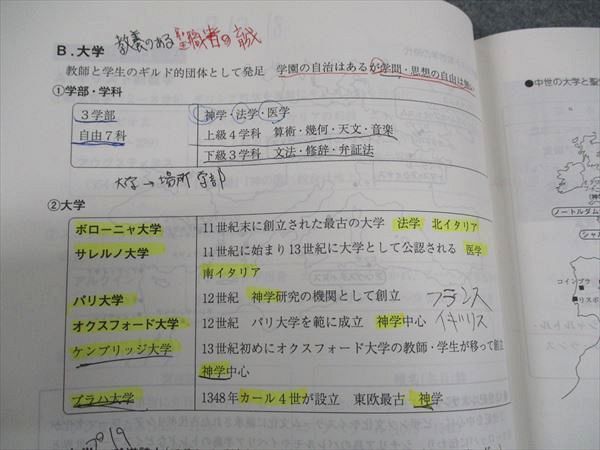 B.大学 教養のある聖職者の育成
教師と学生のギルド的団体として発足 学園の自治はあるが学問・思想の自由は無い
①学部・学科
3学部 神学・法学・医学
自由7科 上級4学科 算術・幾何・天文・音楽
下級3学科 文法・修辞・弁証法
大学→場所 学部
②大学
ボローニャ大学 11世紀末に創立された最古の大学 法学 北イタリア
サレルノ大学 11世紀に始まり13世紀に大学として公認される 医学
南イタリア
パリ大学 12世紀 神学研究の機関として創立 フランス
オクスフォード大学 12世紀 パリ大学を範に成立 神学中心 イギリス
ケンブリッジ大学 13世紀初めにオクスフォード大学の教師・学生が移って創立
神学中心
プラハ大学 1348年カール4世が設立 東欧最古 神学
●中世の大学と聖
ノートルダム
シャル
コインブラ
リスボ